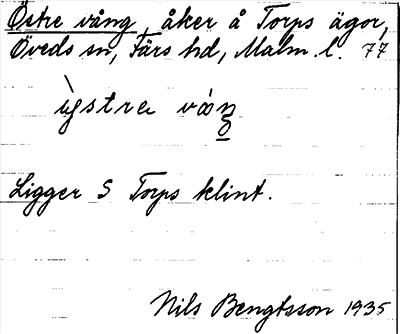 Östre vång, åker å Torps ägor,
Öveds sn, Färs hd, Malm. l. 77
ỳstre vàŋ
Ligger S Torps klint.
Nils Bengtsson 1935